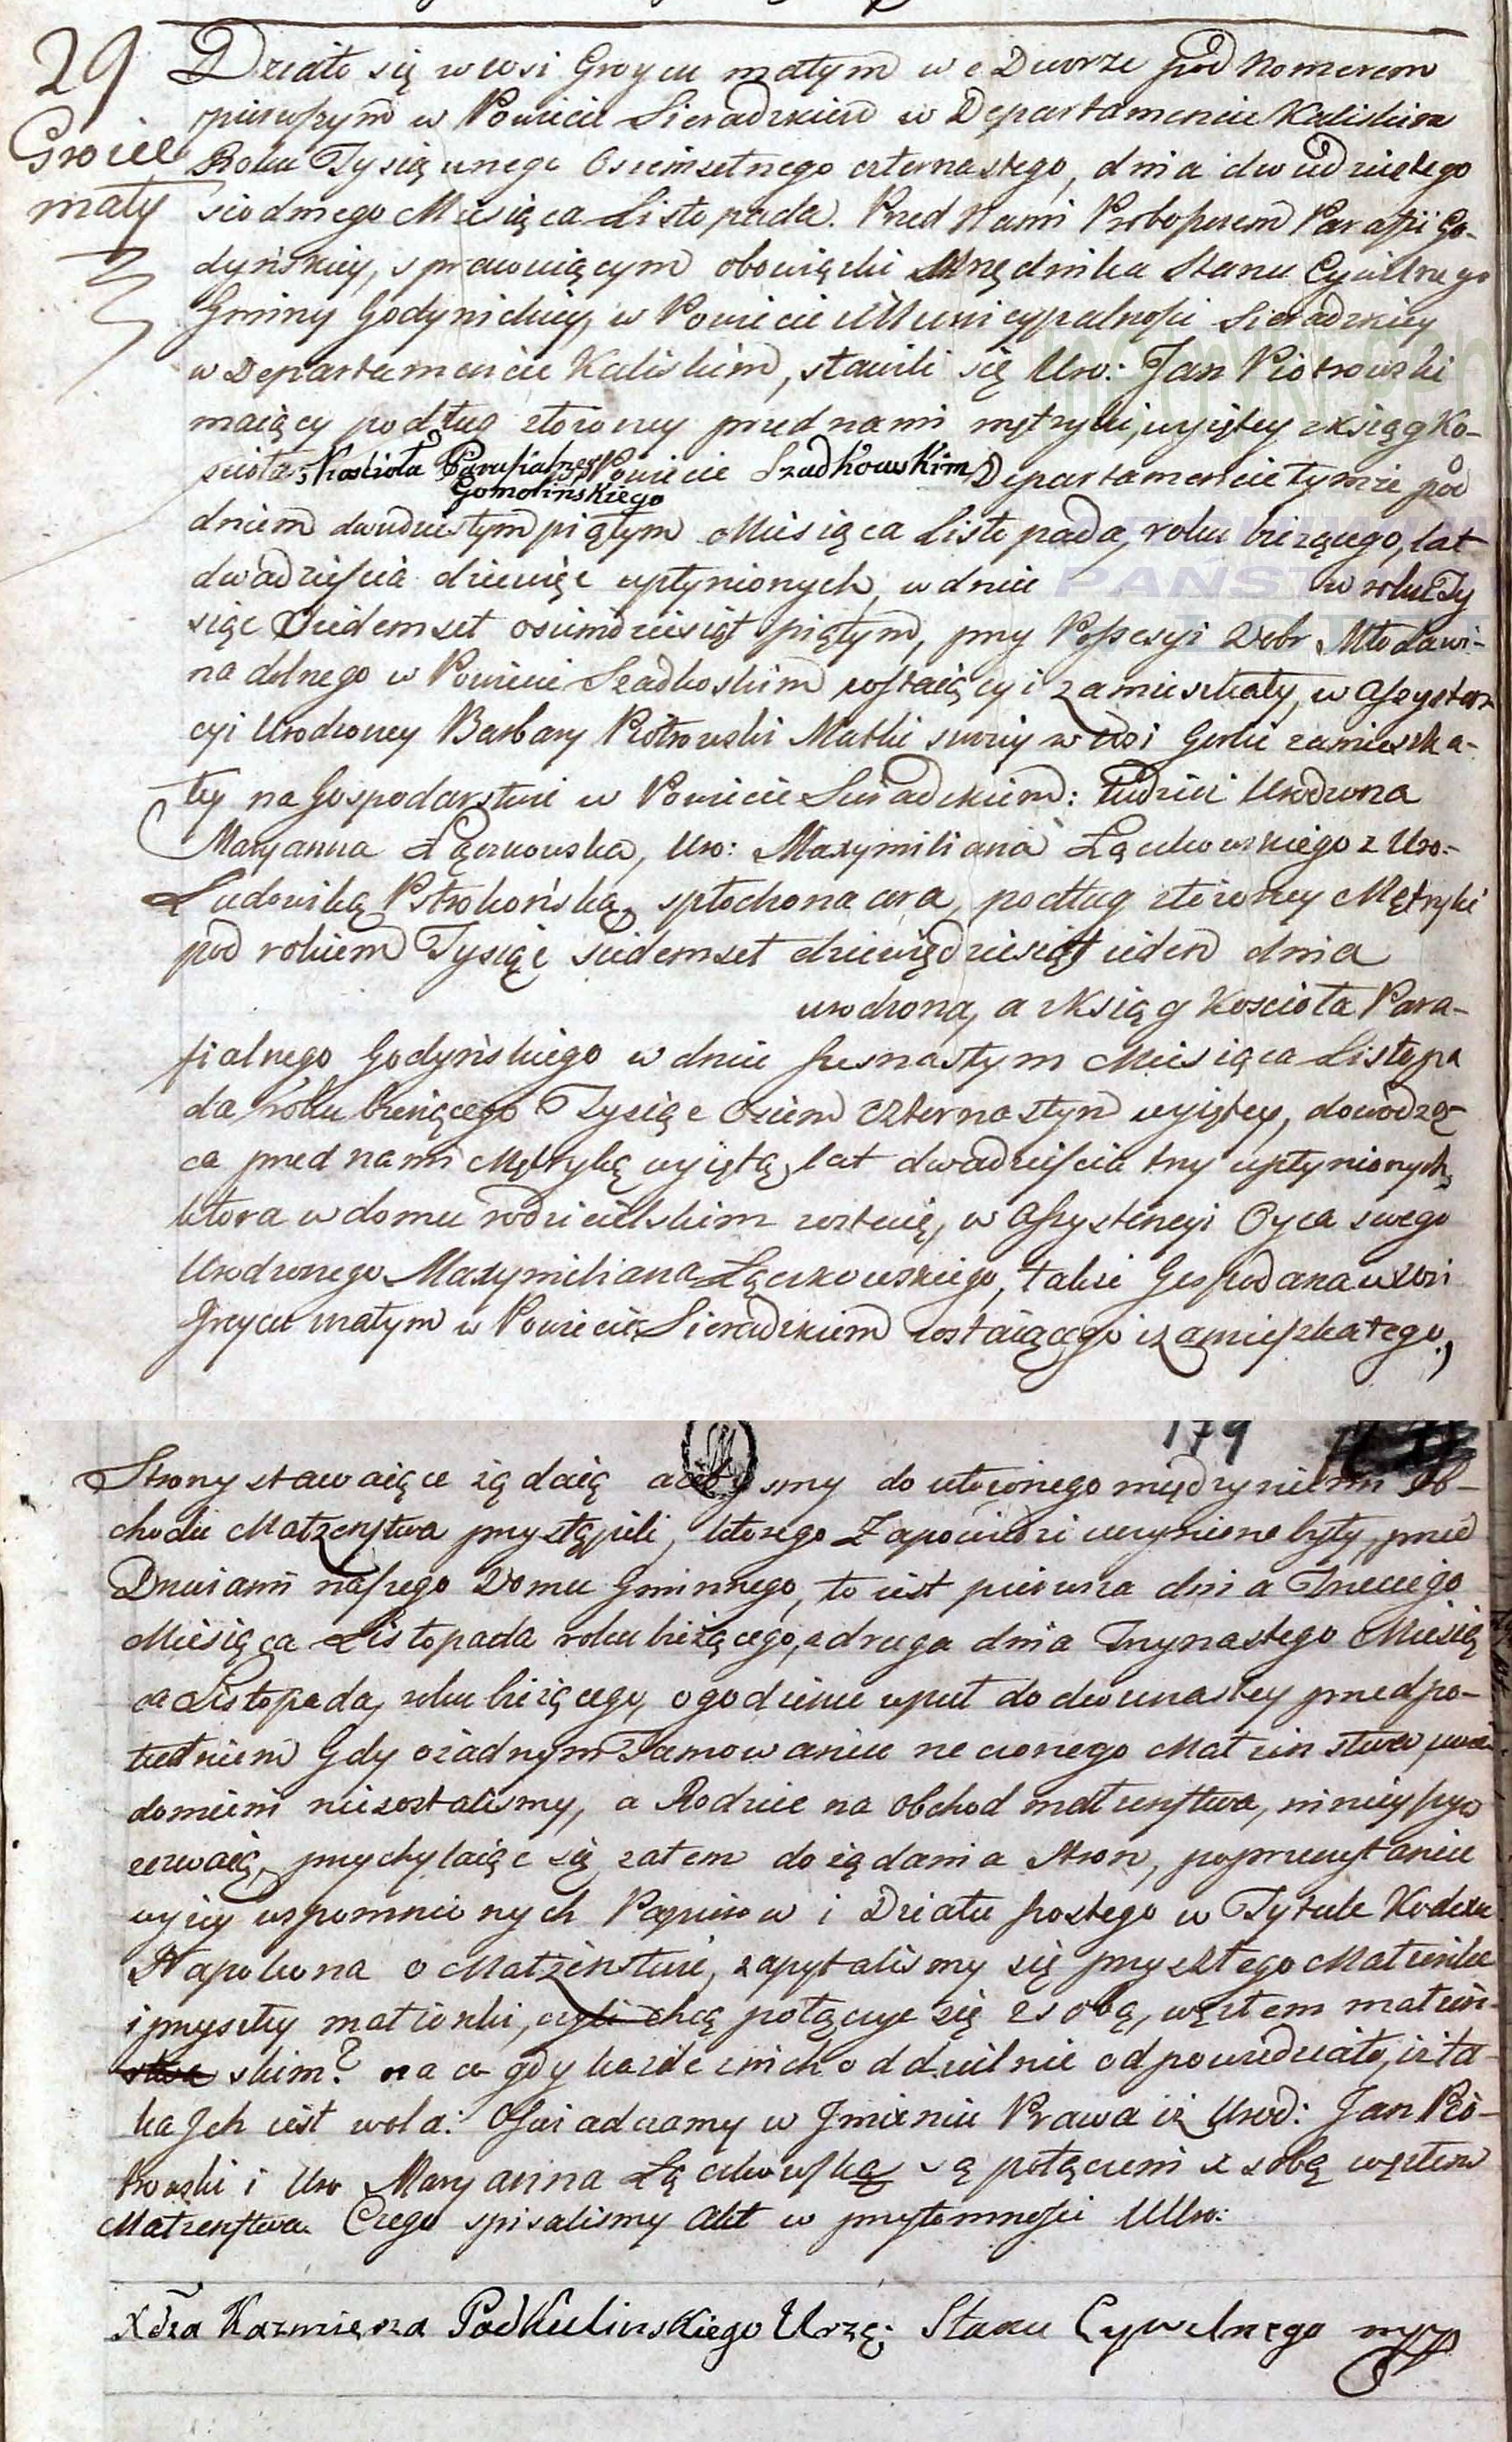 29
Groiec
mały
Działo się w wsi Groycu małym w e Dworze pod Nomerem
pierwszym w Powiecie Sieradzkim w Departamencie Kaliskim
Roku Tysiącznego Osiemsetnego czternastego, dnia dwudziestego
siodmego Miesiąca Listopada. Przed Nami Proboszczem Parafii Go-
dyńskiey, sprawuiącym obowiązki Urzędnika Stanu Cywilnego
Gminy Godynickiey, w Powiecie Municypalności Sieradzkiey
w Departamencie Kaliskim, stawili się Uro: Jan Piotrowski
maiący podług złożoney przed nami metryki, wyiętey z ksiąg Ko-
scioła Kościoła Parafialnego Powiecie Szadkowskim Departamencie tymże pod
Gomolińskiego
dniem dwudziestym piątym Miesiąca Listopada, roku bieżącego, lat
dwadzieścia dziewięc upłynionych, w dniu w roku Ty
siąc Siedemset osiemdziesiąt piątym, przy Possesyi Dobr Młodawi-
na dolnego w Powiecie Szadkoskim zostaiący i zamieszkały, w assysten
cyi Urodzoney Barbary Piotrowski Matki swoiey w wsi zamieszka-
łey na Gospodarstwie w Powiecie Sieradzkiem: tudzież Urodzona
Maryanna Łączkowska, Uro: Maxymiliana Łączkowskiego z Uro-
Ludowiką Pstrokońską spłodzona cora, podług złożoney Metryki
pod rokiem Tysiąc siedemset dziewiędziesiąt ieden dnia
urodzona, a z Ksiąg Kościoła Para-
fialnego Godyńskiego w dniu szesnastym Miesiąca Listopa
da roku bieżącego Tysiąc Osiem czternastym wyiętey, dowodzą-
ca przed nami Metryką wyiętą, lat dwadzieścia trzy upłynionych,
ktora w domu rodzicielskim zostaię, w Assystencyi Oyca swego
Urodzonego Maxymiliana Łączkowskiego, także Gospodarza w wsi
Groycu małym w Powiecie Sieradzkiem zostaiącego i zamieszkałego,
179
Strony stawaiące żądaią abyśmy do ułożonego między niemi Ob-
chodu Małżenstwa przystąpili, ktorego Zapowiedzi uczynione były, przed
Drzwiami naszego Domu Gminnego, to iest pierwsza dnia Trzeciego
Miesiąca Listopada roku bieżącego, a druga dnia Trzynastego Miesią
ca Listopada, roku bieżącego, o godzinie wpuł do dwunastey przed po-
łudniem Gdy o żadnym Tamowaniu rzeczonego Małżinstwa uwia
domieni niezostalismy, a Rodzice na obchod małzenstwa, ninieyszym
zezwaią, przychylaiąc się zatem do żądania Stron, po przeczytaniu
wyżey wspomnionych Papierow i Działu szostego w Tytule Kodexu
Napoleona o Małżeństwie, zapytalismy się przyszłego Małżonka
i przyszłey małżonki, czyli chcą połączyc się z sobą, węzłem małżeń-
stwa skim? na co gdy każde z nich oddzielnie odpowiedziało, iż ta-
ka Jch iest wola: Oświadczamy w Jmieniu Prawa iż Urod: Jan Pio-
trowski i Uro Maryanna Łączkowska są połączeni z sobą węzłem
Małzenstwa. Czego spisalismy Akt w przytomności UUro:
Xdza Kazmierza Podkulinskiego Urzę: Stanu Cywilnego mpp